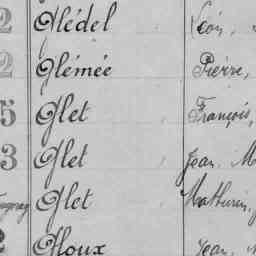 2 Glédel Léon,
2 Glémée Pierre,
5 Glet François,
3 Glet Jean M
Glet Mathurin
2 Gloux Jean